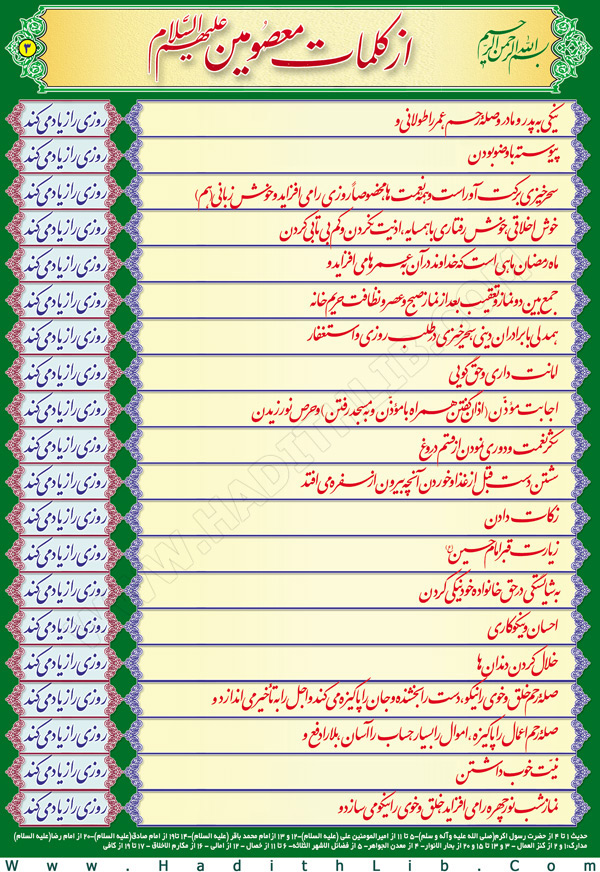 بسم الله الرحمن الرحیم
از کلمات معصومین علیهم السلام
۳
نیکی به پدر و مادر و صلهٔ رحم عمر را طولانی و روزی را زیاد می کند
پیوسته با وضو بودن روزی را زیاد می کند
سحرخیزی برکت آور است و همه نعمت ها، مخصوصاً روزی را می افزاید و خوش زبانی (هم) روزی را زیاد می کند
خوش اخلاقی، خوش رفتاری با همسایه، اذیت نکردن و کم بی تابی کردن روزی را زیاد می کند
ماه رمضان ماهی است که خداوند در آن عمرها می افزاید و روزی را زیاد می کند
جمع بین دو نماز و تعقیب بعد از نماز صبح و عصر و نظافت حریم خانه روزی را زیاد می کند
همدلی با برادران دینی سحرخیزی در طلب روزی و استغفار روزی را زیاد می کند
امانت داری و حق گویی روزی را زیاد می کند
اجابت مؤذن (اذان گفتن همراه با مؤذن و به مسجد رفتن) و حرص نورزیدن روزی را زیاد می کند
شکر نعمت و دوری نمودن از قسم دروغ روزی را زیاد می کند
شستن دست قبل از غذا و خوردن آنچه بیرون از سفره می افتد روزی را زیاد می کند
زکات دادن روزی را زیاد می کند
زیارت قبر امام حسین روزی را زیاد می کند
به شایستگی در حق خانواده خود نیکی کردن روزی را زیاد می کند
احسان و نیکوکاری روزی را زیاد می کند
خلال کردن دندان ها روزی را زیاد می کند
صله رحم خلق و خوی را نیکو، دست را بخشنده و جان را پاکیزه می کند و اجل را به تأخیر می اندازد و روزی را زیاد می کند
صله رحم اعمال را پاکیزه، اموال را بسیار، حساب را آسان، بلا را دفع و روزی را زیاد می کند
نیت خوب داشتن روزی را زیاد می کند
نماز شب نور چهره را می افزاید خلق و خوی را نیکو می سازد و روزی را زیاد می کند
حدیث ۱ تا ۴ از حضرت رسول اکرم(صلی الله علیه و آله و سلم)-۵ تا ۱۱ از امیرالمومنین علی (علیه السلام)-۱۲ و ۱۳ از امام محمد باقر (علیه السلام)-۱۴ تا ۱۹ از امام صادق(علیه السلام)-۲۰ از امام رضا(علیه السلام)
مدارک:۱ و ۲ از کنز العمال - ۳ و ۱۳ تا ۱۵ و ۲۰ از بحار الانوار - ۴ از معدن الجواهر- ۵ از فضائل الاشهر الثلاثه- ۶ تا ۱۱ از خصال - ۱۲ از امالی - ۱۶ از مکارم الاخلاق - ۱۷ تا ۱۹ از کافی
www.HadithLib.Com